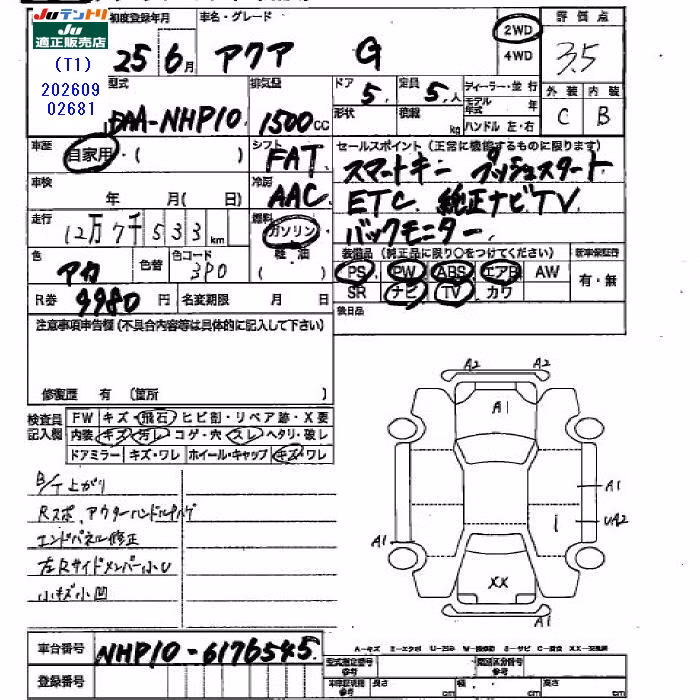 Juテントリ
JU
適正販売店
(T1)
202609
02681
初度登録年月 車名・グレード 2WD 4WD 評価点
25 6月 アクア G 3.5
型式 排気量 ドア 定員 ディーラー・並行 外装 内装
DAA-NHP10 1500cc 5 5人 モデル年式 年 C B
形状 積載 kg ハンドル 左・右
車歴 自家用・( ) シフト FAT セールスポイント(正常に機能するものに限ります)
スマートキー プッシュスタート
車検 年 月( 日) 冷房 AAC ETC. 純正ナビTV.
走行 12万7千533km 燃料 ガソリン 軽油 ( ) バックモニター.
色 アカ 色替 色コード 3P0
装備品 (純正品に限り○をつけてください) 新車保証書
PS PW ABS エアB AW 有・無
R券 9980円 名変期限 月 日 SR ナビ TV カワ
後日品
注意事項申告欄(不具合内容等は具体的に記入して下さい)
修復歴 有 (箇所 )
検査員記入欄
FW キズ・飛石・ヒビ割・リペア跡・X要
内装 キズ・汚レ・コゲ・穴・スレ・ヘタリ・破レ
ドアミラー キズ・ワレ ホイール・キャップ キズ・ワレ
B/T上がり
Rスポ、アウターハンドル
エンドパネル修正
左Rサイドメンバー小U
小キズ小凹
A2 A2
A1
A1
1 UA2
A1
XX
A1
A-キズ E-エクボ U-凹み W-補修跡 S-サビ C-腐食 XX-交換済
車台番号 NHP10-6176545
登録番号
型式指定番号 参考 類別区分番号 参考
参考 長さ cm 幅 cm 高さ cm